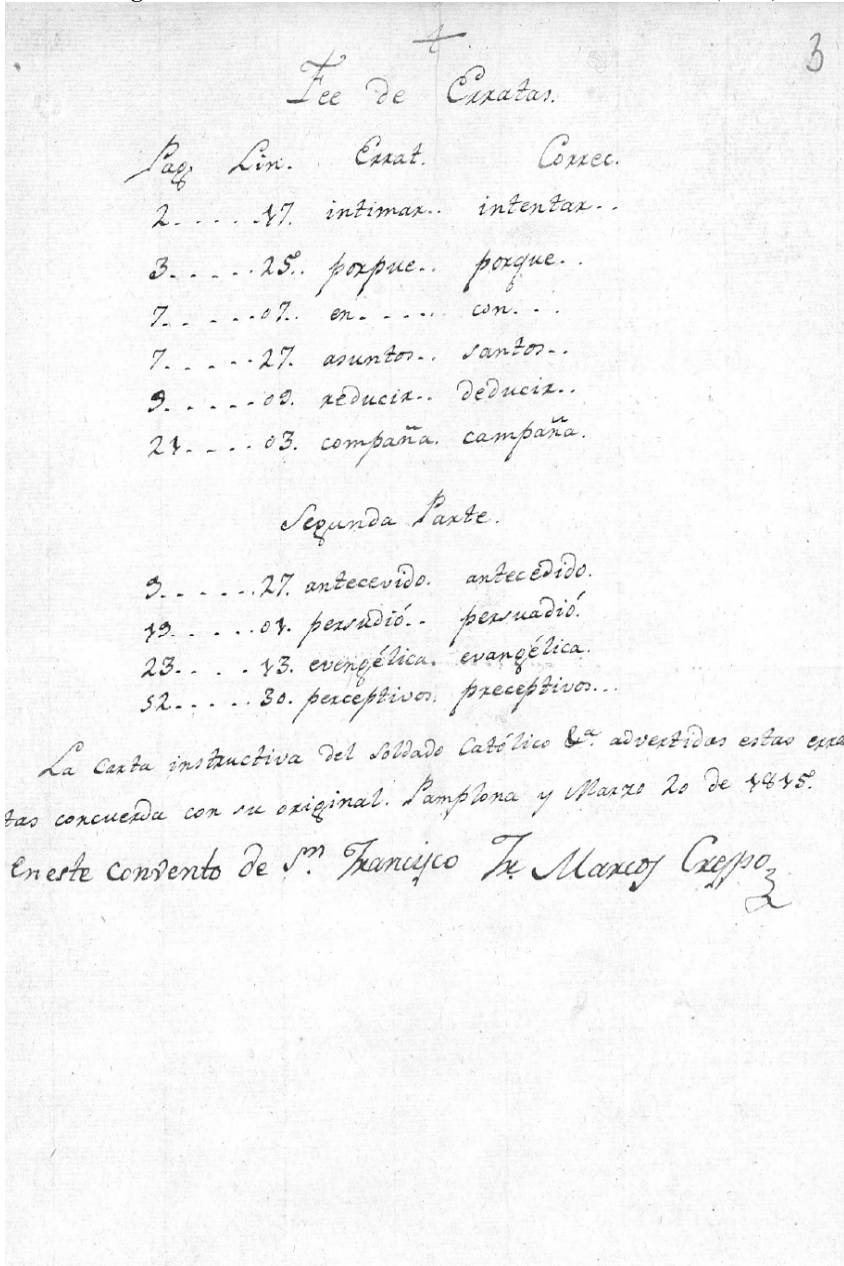 3
Fee de Erratas.
Pag. Lin. Errat. Correc.
2. . . . . 17. intimar. . intentar. . .
3. . . . . 25. porpue. . porque. . .
7. . . . . 07. en. . . . . con. . .
7. . . . . 27. asuntos. . santos. . .
9. . . . . 09. reducir. . deducir. . .
21. . . . 03. compaña. campaña.
Segunda Parte.
9. . . . . . 27. antecevido. antecedido.
19. . . . . 01. persudió. . persuadió.
23. . . . 13. evengélica. evangélica.
52. . . . . 30. perceptivos. preceptivos. . .
La Carta instructiva del Soldado Católico &a. advertidas estas erra
tas concuerda con su original. Pamplona y Marzo 20 de 1815.
En este Convento de Sn. Francisco Fr. Marcos Crespo